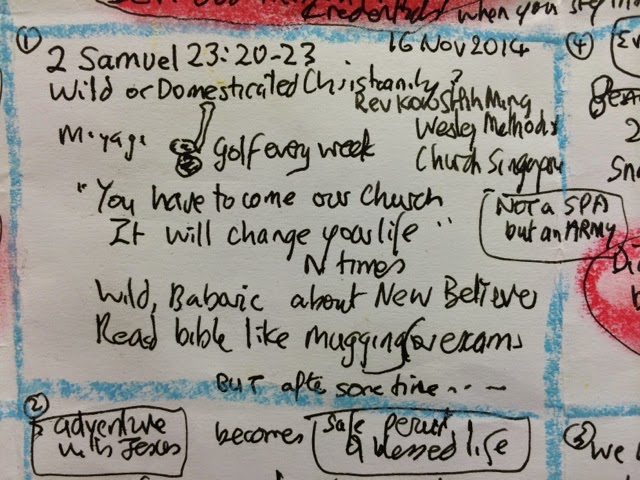 Credentials when you step
①
2 Samuel 23:20-23
16 Nov 2014
Wild or Domesticated Christianity?
Miyagi
golf every week
Wesley Methodis
Church Singapore
"You have to come our Church
It will change your life"
N times
NOT a SPA
but an ARMY
Wild, Babaric about New Believe
Read bible like mugging for exams
BUT afte some time...
②
adventure
with Jesus
becomes
Safe
a blessed life
③
we
④
2